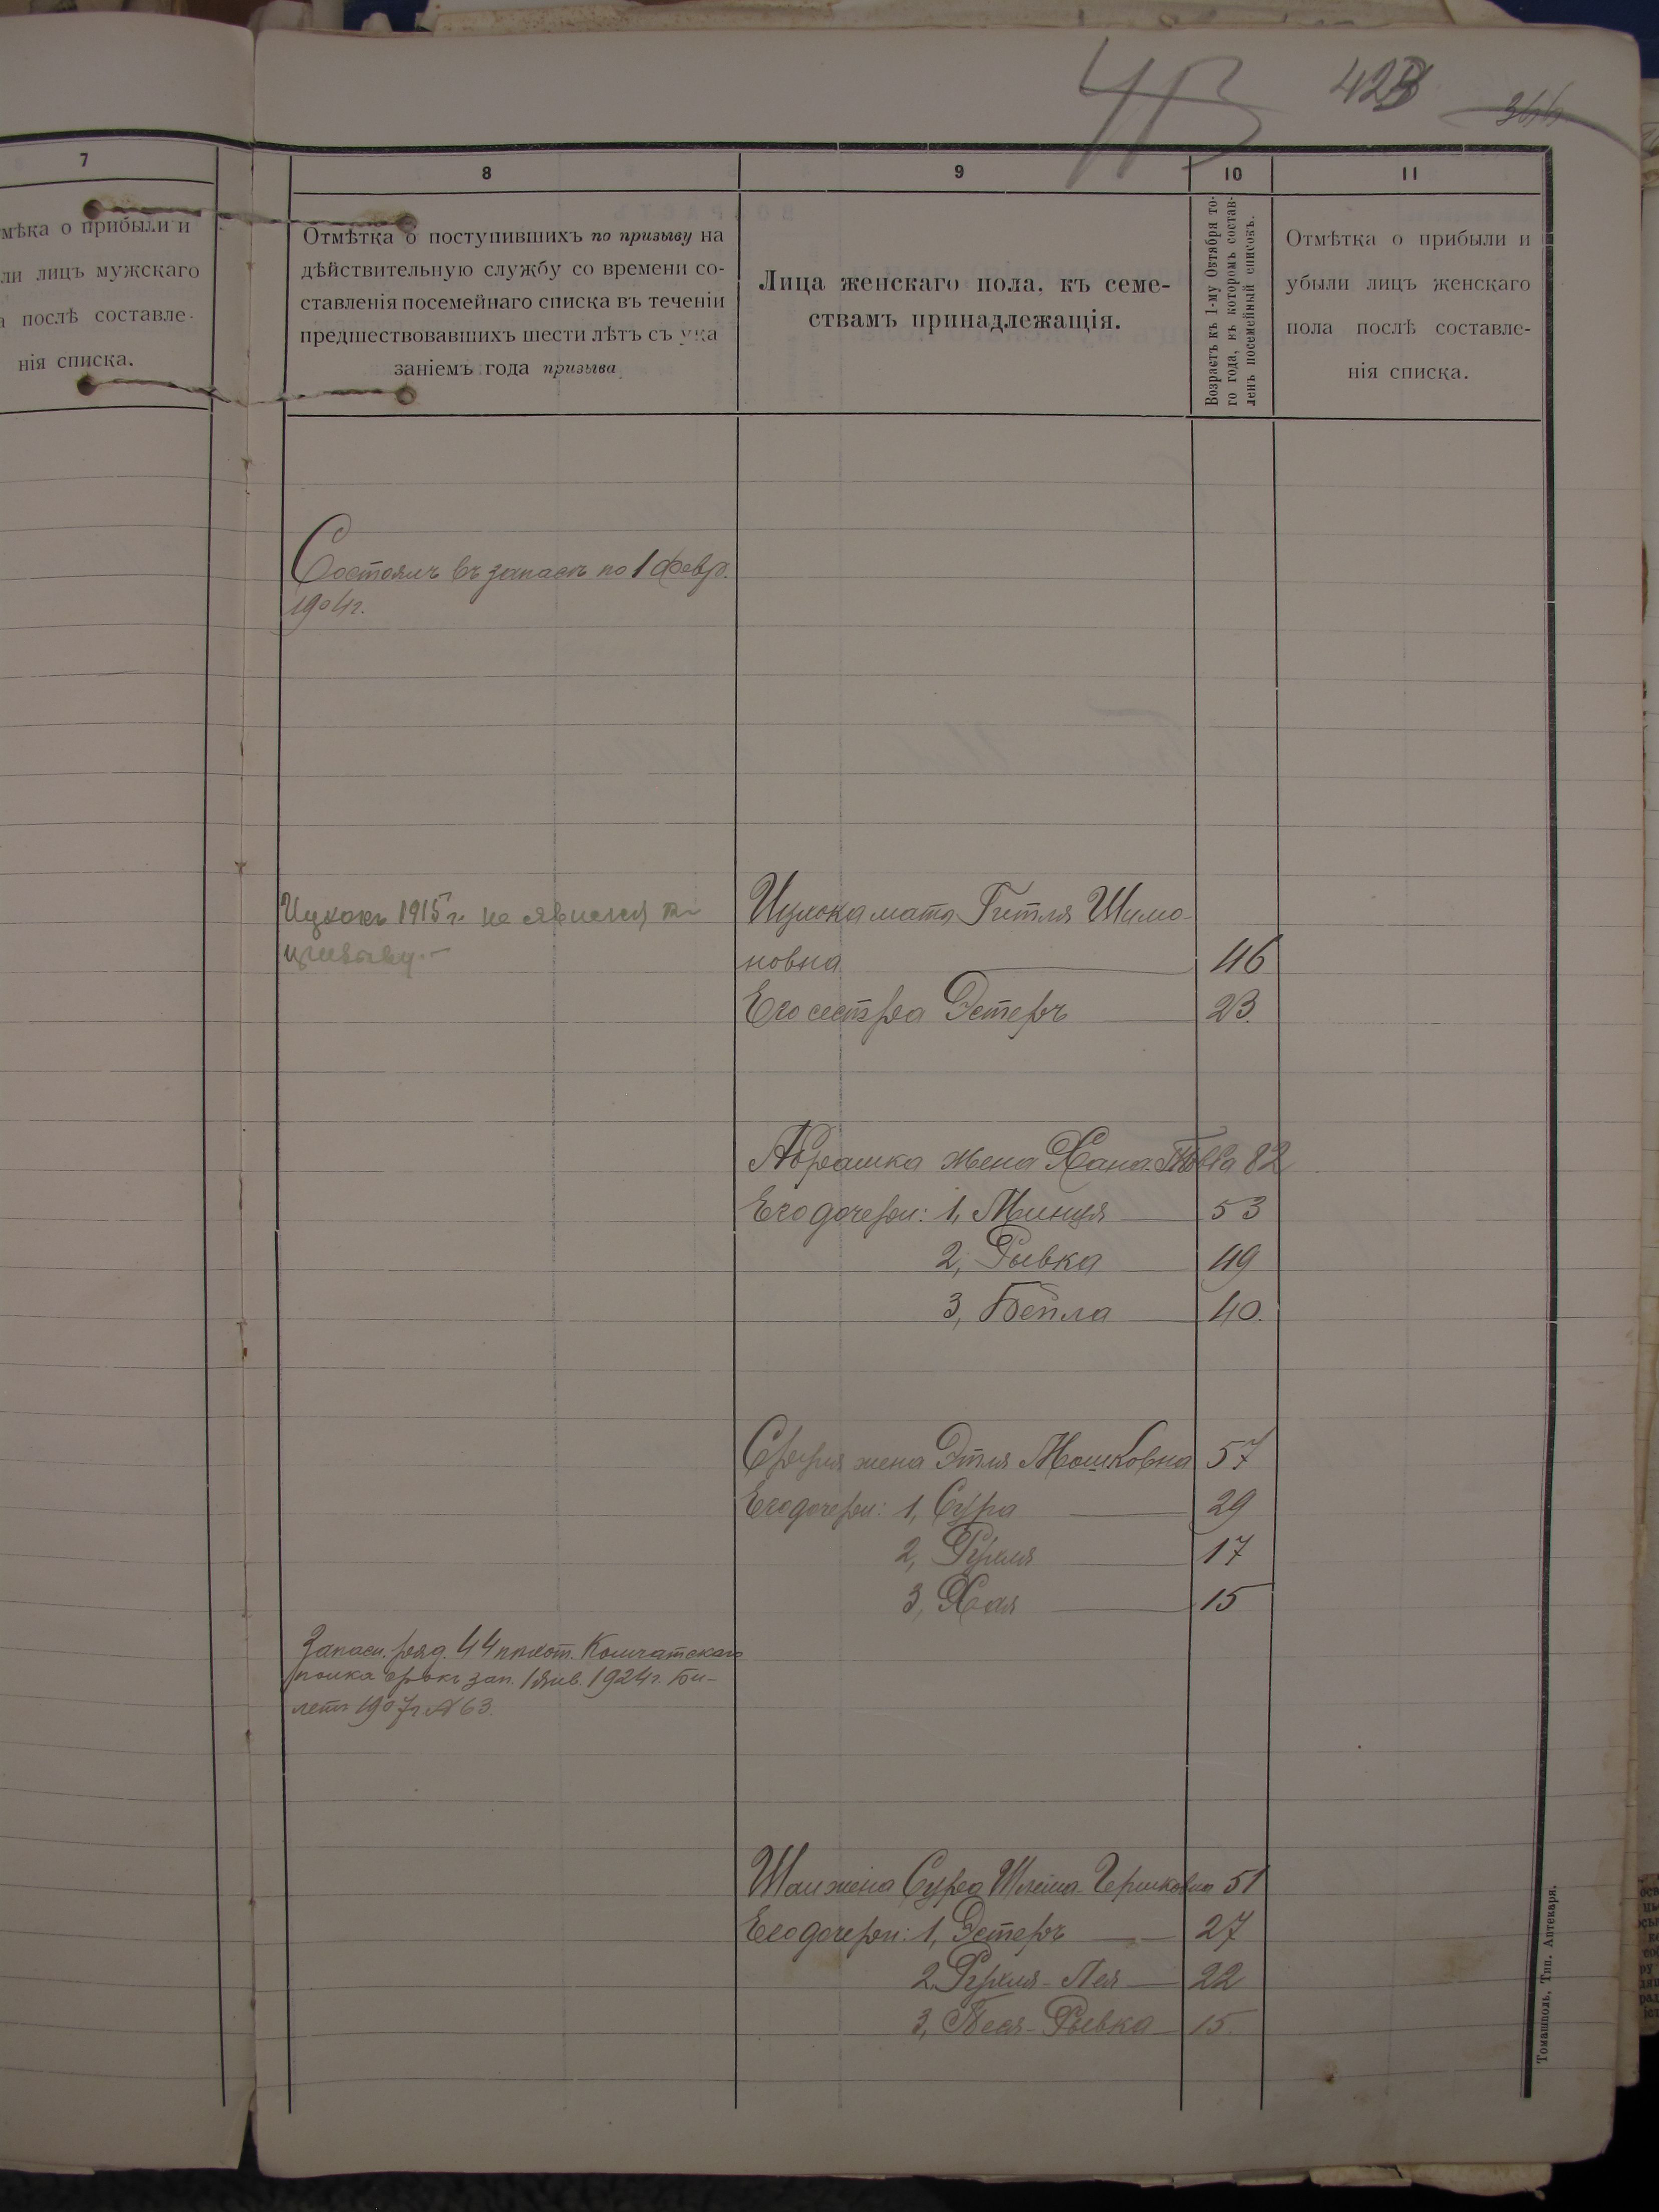 413
423
344
7
мѣка о прибыли и
ли лицъ мужскаго
а послѣ составле-
нія списка.
8
Отмѣтка о поступившихъ по призыву на
дѣйствительную службу со времени со-
ставленія посемейнаго списка въ теченіи
предшествовавшихъ шести лѣтъ съ ука
заніемъ года призыва
9
Лица женскаго пола, къ семе-
ствамъ принадлежащія.
10
Возрастъ къ 1-му Октября то-
го года, въ которомъ состав-
ленъ посемейный списокъ.
11
Отмѣтка о прибыли и
убыли лицъ женскаго
пола послѣ составле-
нія списка.
Состоялъ въ запасѣ по 1 февр.
1904 г.
Ицкокъ 1915 г. не явился
призыву.
Ицкока мать Гитля Шимо-
новна 46
Его сестра Эстеръ 23.
Абрашка жена Хана 82
Его дочери: 1, Минця 53
2, Рывка 49
3, Бейла 40.
Сруля жена Этля Мошковна 57
Его дочери: 1, Сура 29
2, Рухля 17
3, Хая 15
Запасн. ряд. 44 пѣхот. Камчатскаго
полка срокъ зап. 1 Янв. 1924 г. Би-
летъ 1907 г. № 63.
Шаи жена Сура Шлейма-Гершковна 51
Его дочери: 1, Эстеръ 27
2, Рухля-Лея 22
3, Песя-Рывка 15.
Томашполь, Тип. Аптекаря.